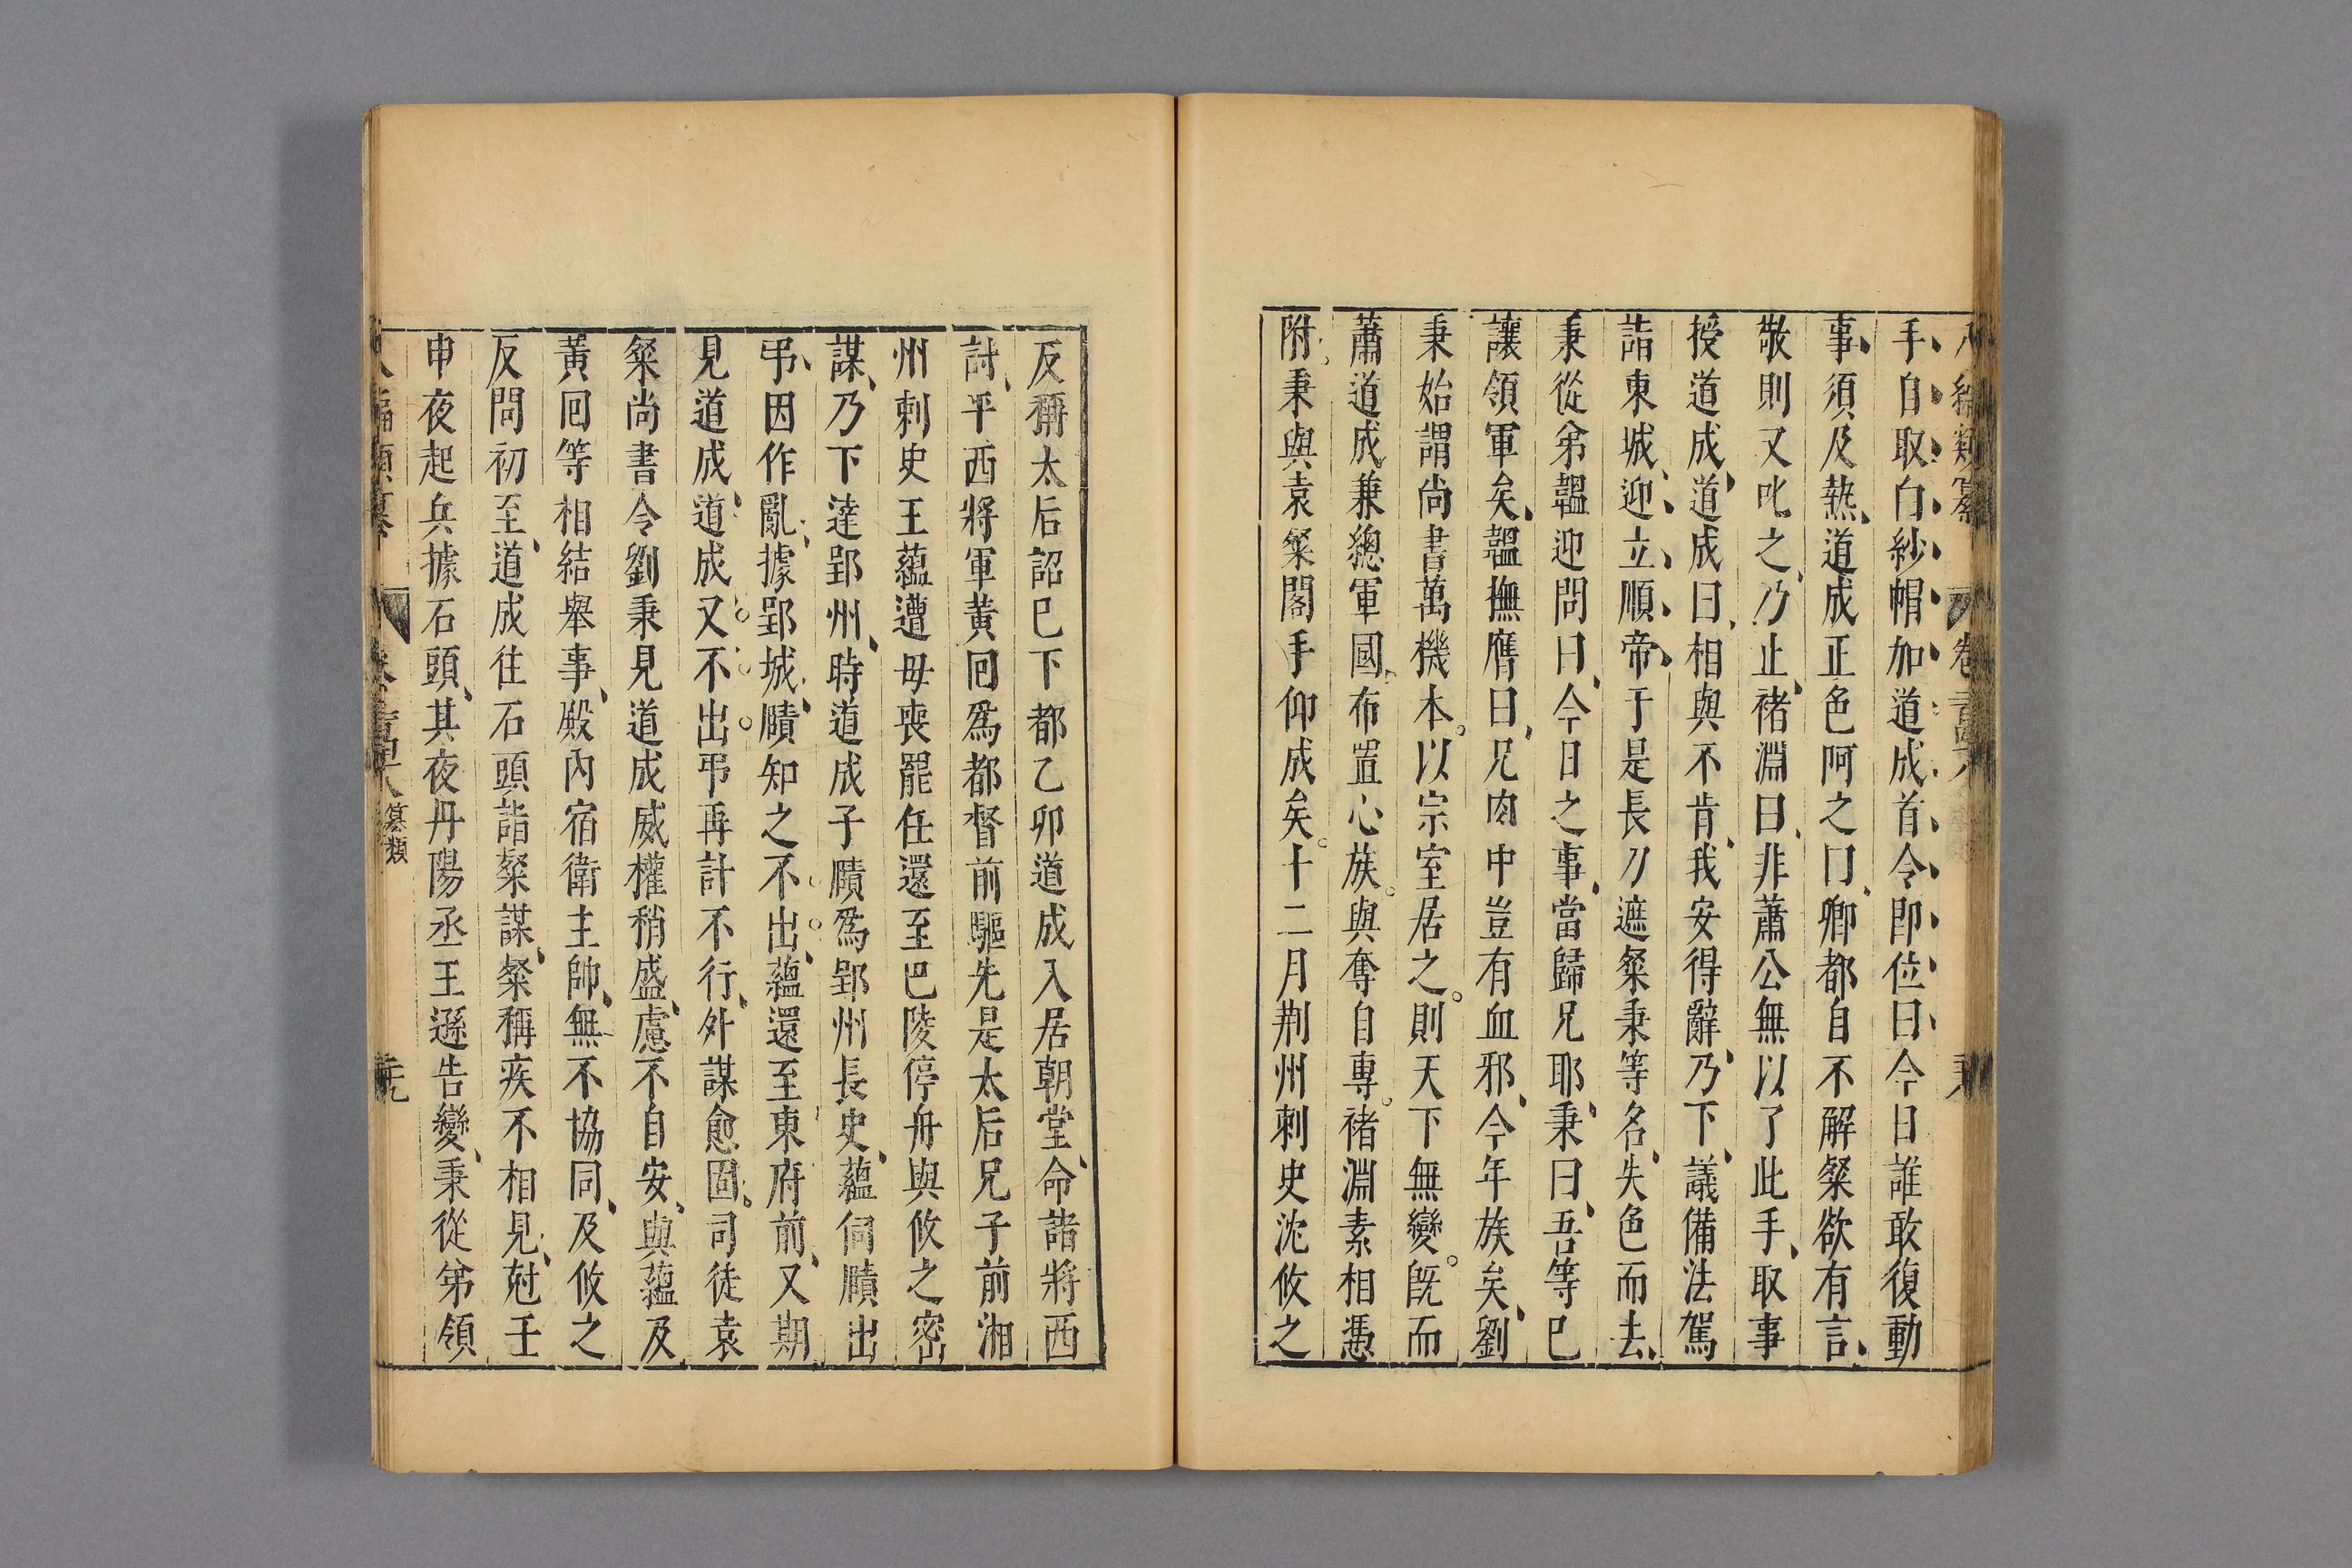 手自取白紗帽加道成首令即位曰今日誰敢復動
事須及熱道成正色呵之曰卿都自不解粲欲有言
敬則又叱之乃止褚淵曰非蕭公無以了此手取事
授道成道成曰相與不肯我安得辭乃下議備法駕
詣東城迎立順帝于是長刀遮粲秉等各失色而去
秉從弟韞迎問曰今日之事當歸兄耶秉曰吾等已
讓領軍矣韞撫膺曰兄肉中豈有血邪今年族矣劉
秉始謂尚書萬機本以宗室居之則天下無變既而
蕭道成兼總軍國布置心族與奪自專褚淵素相憑
附秉與袁粲閣手仰成矣十二月荆州刺史沈攸之
反稱太后詔已下都乙卯道成入居朝堂命諸將西
討平西將軍黃回爲都督前驅先是太后兄子前湘
州刺史王蘊遭母喪罷任還至巴陵停舟與攸之密
謀乃下達郢州時道成子賾爲郢州長史蘊伺賾出
弔因作亂據郢城賾知之不出蘊還至東府前又期
見道成道成又不出弔再計不行外謀愈固司徒袁
粲尚書令劉秉見道成威權稍盛慮不自安與蘊及
黃回等相結舉事殿內宿衛主帥無不協同及攸之
反問初至道成往石頭詣粲謀粲稱疾不相見尅壬
申夜起兵據石頭其夜丹陽丞王遜告變秉從弟領
纂類